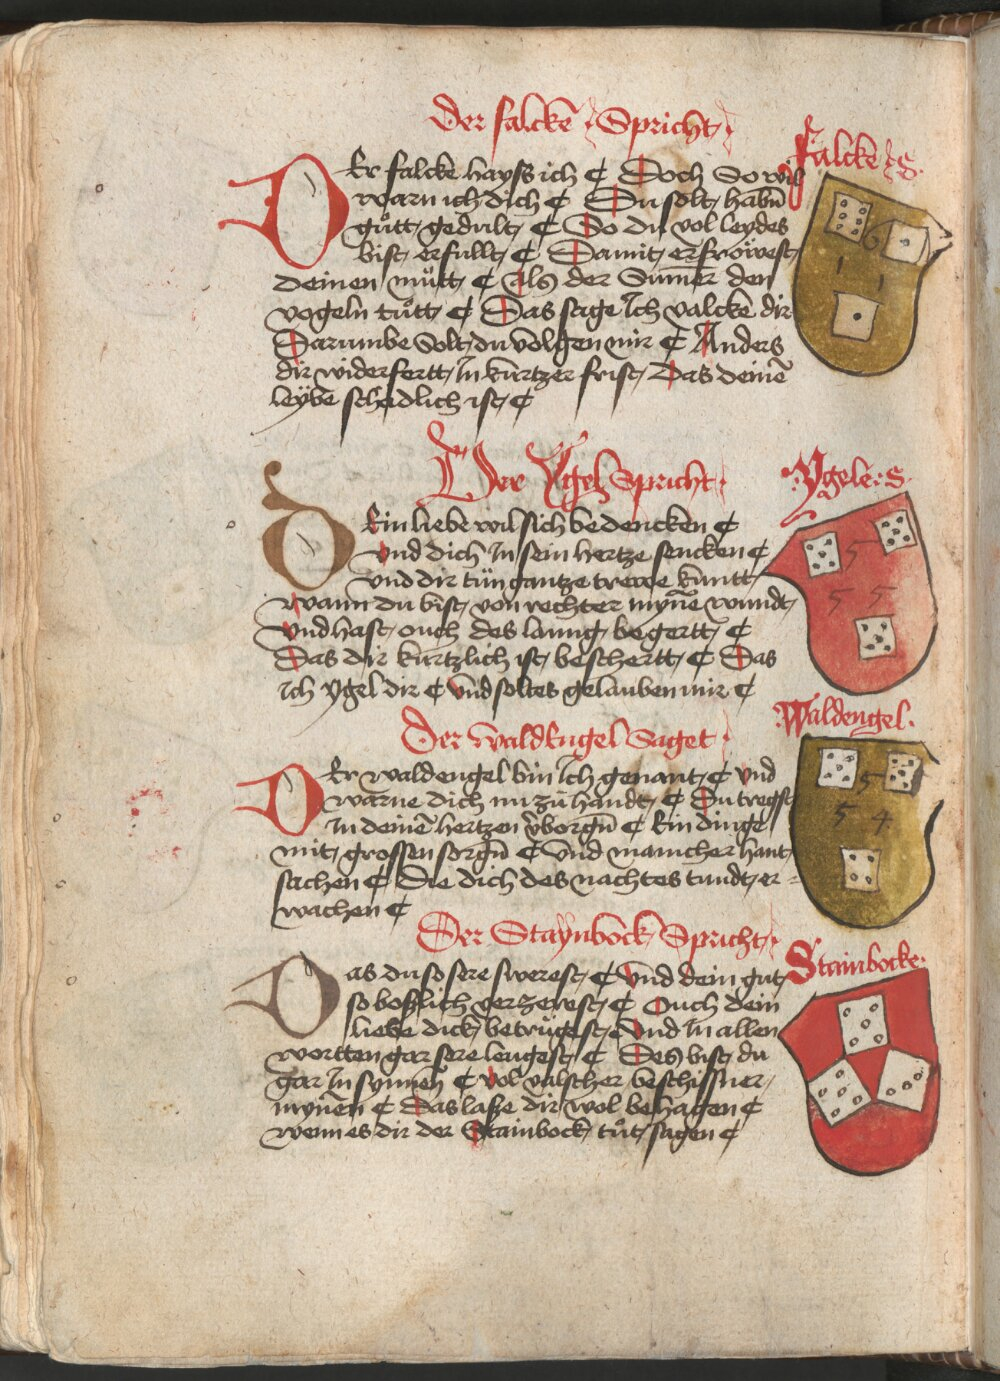 Der falckē Spricht
Falcke
ER falcke hayss ich ¢ Doch So wil
warn ich dich ¢ Du solt habn̄
gůtt gedult ¢ So du vol leydes
bist erfullt ¢ Damit erfröwest
deinen můtt ¢ Als der Sum̄er den
vogeln tůtt ¢ Das sage Ich valcke dir
Darumbe Solt du volgen mir ¢ Anders
dir widerfertt In kurtzer frist Das deinē
leybe schedlich ist ¢
6
1 1
Der Ygel Spricht
Ygele
DEin liebe wil sich bedencken ¢
vnd dich In sein hertze sencken ¢
vnd dir tün gantze trewe kuntt
wann du bist von rechter myn̄e wundt
vnd hast ouch des lanng begertt ¢
Das dir kurtzlich ist beschertt ¢ Das
Ich ygel dir ¢ vnd soltes gelauben mir ¢
5
5 5
Der waldEngel Saget
Waldengel
DEr waldengel bin Ich genant ¢ vnd
warne dich nu zů handt ¢ Du tregst
In deinē hertzen v̄borgn̄ ¢ Ein dinge
mit grossen sorgn̄ ¢ vnd manicher hant
sachen ¢ Die dich des nachtes tundt er=
wachen ¢
5
5 4
Der Staynbock Spricht
Stainbocke
Das du so sere swerest ¢ vnd dein gut
so boslich verzerest ¢ Ouch dein
liebe dick betrügest ¢ vnd In allen
wortten gar sere leugest ¢ Des bist du
gar In synnen ¢ vol valscher beschissner
mynen ¢ Das lasse dir wol behagen ¢
wenn es dir der Stainbock tůt sagen ¢